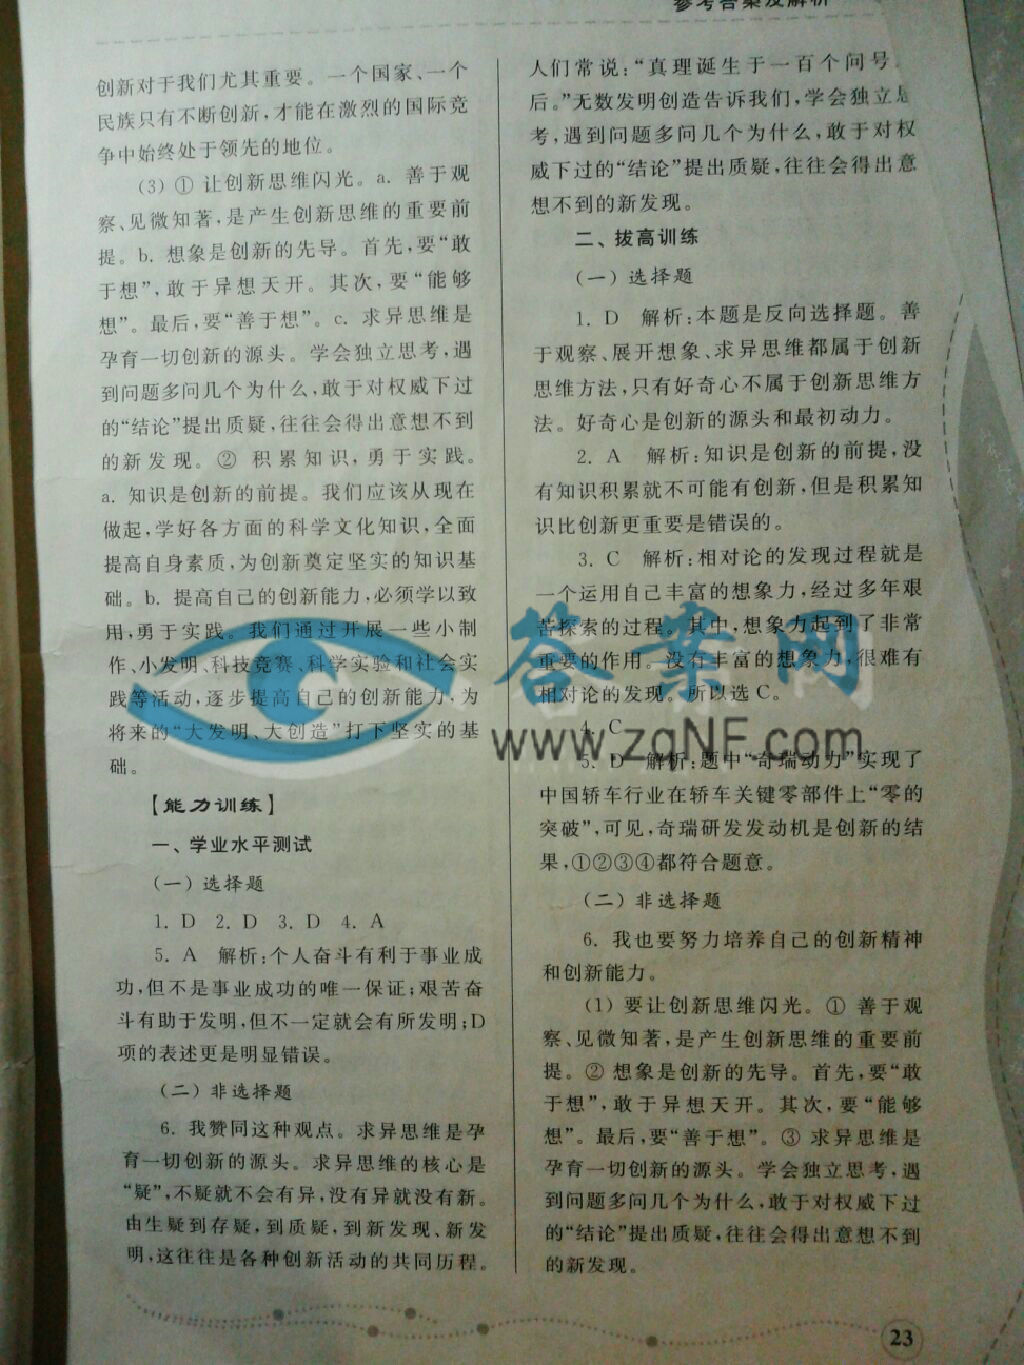 参考答案及解析
创新对于我们尤其重要。一个国家、一个
民族只有不断创新,才能在激烈的国际竞
争中始终处于领先的地位。
(3) ① 让创新思维闪光。a. 善于观
察、见微知著,是产生创新思维的重要前
提。b. 想象是创新的先导。首先,要“敢
于想”,敢于异想天开。其次,要“能够
想”。最后,要“善于想”。c. 求异思维是
孕育一切创新的源头。学会独立思考,遇
到问题多问几个为什么,敢于对权威下过
的“结论”提出质疑,往往会得出意想不到
的新发现。② 积累知识,勇于实践。
a. 知识是创新的前提。我们应该从现在
做起,学好各方面的科学文化知识,全面
提高自身素质,为创新奠定坚实的知识基
础。b. 提高自己的创新能力,必须学以致
用,勇于实践。我们通过开展一些小制
作、小发明、科技竞赛、科学实验和社会实
践等活动,逐步提高自己的创新能力,为
将来的“大发明、大创造”打下坚实的基
础。
【能力训练】
一、学业水平测试
(一) 选择题
1. D 2. D 3. D 4. A
5. A 解析:个人奋斗有利于事业成
功,但不是事业成功的唯一保证;艰苦奋
斗有助于发明,但不一定就会有所发明;D
项的表述更是明显错误。
(二) 非选择题
6. 我赞同这种观点。求异思维是孕
育一切创新的源头。求异思维的核心是
“疑”,不疑就不会有异,没有异就没有新。
由生疑到存疑,到质疑,到新发现、新发
明,这往往是各种创新活动的共同历程。
人们常说:“真理诞生于一百个问号
后。”无数发明创造告诉我们,学会独立思
考,遇到问题多问几个为什么,敢于对权
威下过的“结论”提出质疑,往往会得出意
想不到的新发现。
二、拔高训练
(一) 选择题
1. D 解析:本题是反向选择题。善
于观察、展开想象、求异思维都属于创新
思维方法,只有好奇心不属于创新思维方
法。好奇心是创新的源头和最初动力。
2. A 解析:知识是创新的前提,没
有知识积累就不可能有创新,但是积累知
识比创新更重要是错误的。
3. C 解析:相对论的发现过程就是
一个运用自己丰富的想象力,经过多年艰
苦探索的过程。其中,想象力起到了非常
重要的作用。没有丰富的想象力,很难有
相对论的发现。所以选 C。
4. C
5. D 解析:题中“奇瑞动力”实现了
中国轿车行业在轿车关键零部件上“零的
突破”,可见,奇瑞研发发动机是创新的结
果,①②③④都符合题意。
(二) 非选择题
6. 我也要努力培养自己的创新精神
和创新能力。
(1) 要让创新思维闪光。① 善于观
察、见微知著,是产生创新思维的重要前
提。② 想象是创新的先导。首先,要“敢
于想”,敢于异想天开。其次,要“能够
想”。最后,要“善于想”。③ 求异思维是
孕育一切创新的源头。学会独立思考,遇
到问题多问几个为什么,敢于对权威下过
的“结论”提出质疑,往往会得出意想不到
的新发现。
23
答案网
www.zqNF.com